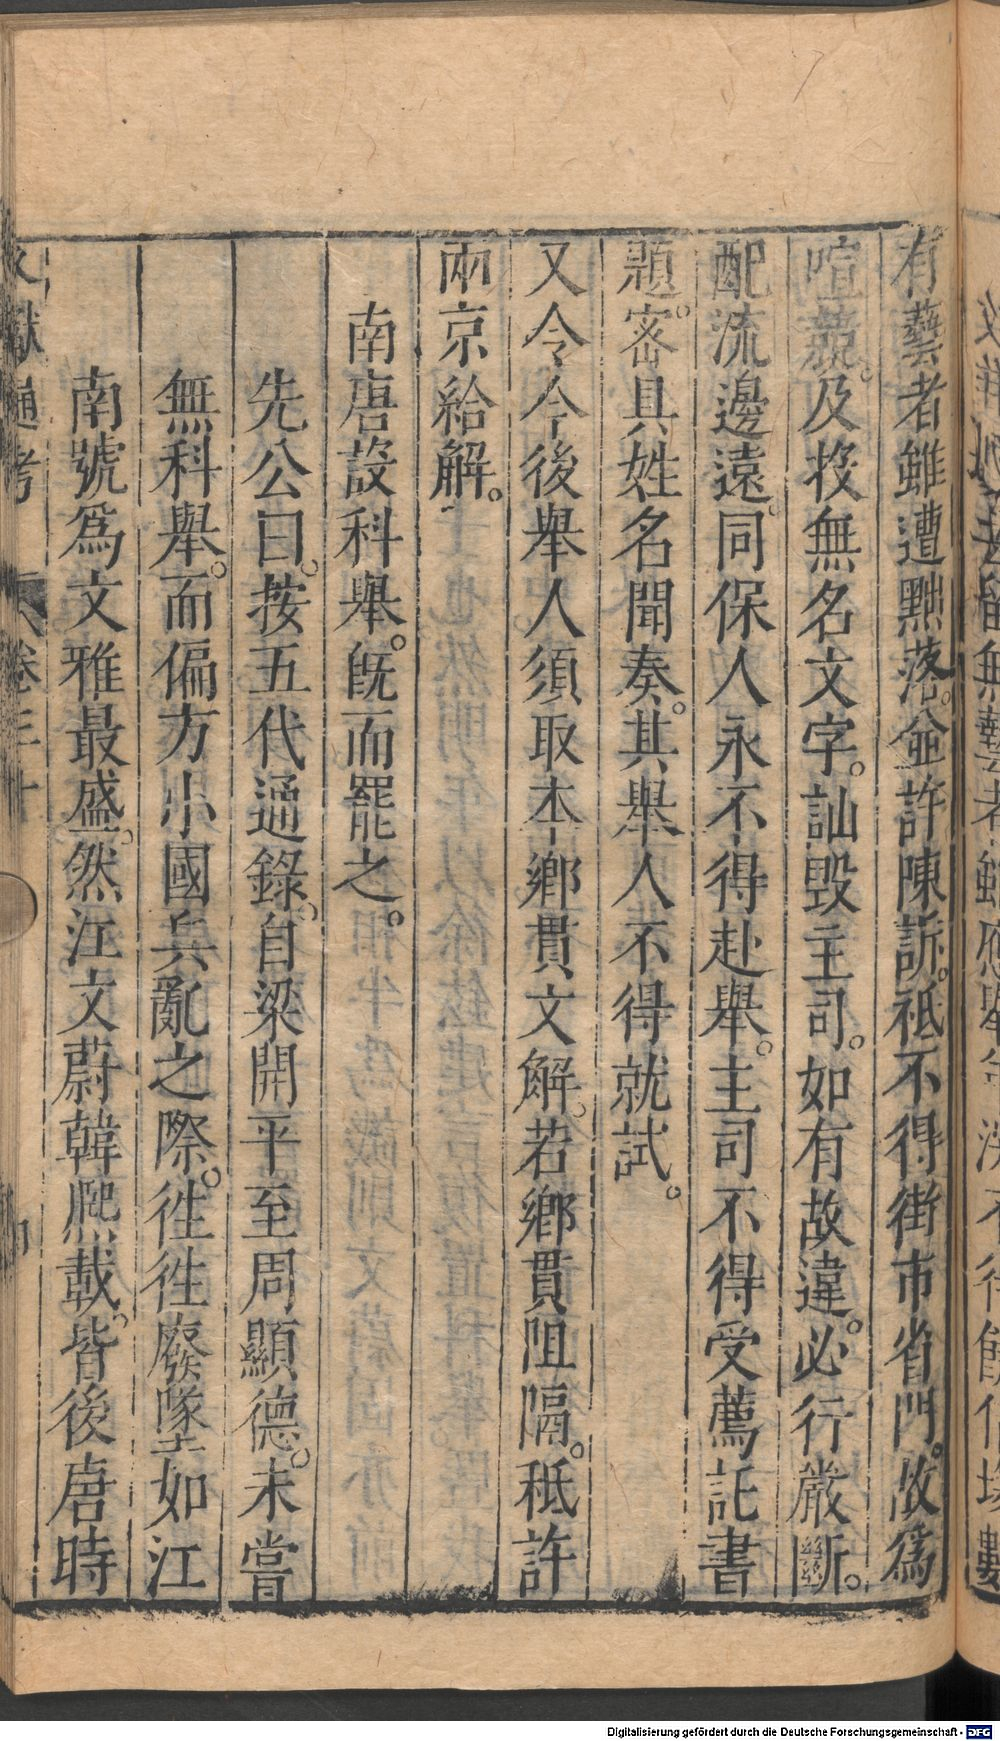 有藝者雖遭黜落。並許陳訴。祗不得街市省門。故爲
喧競。及投無名文字。訕毀主司。如有故違。必行嚴斷。
配流邊遠。同保人永不得赴舉。主司不得受薦託書
題。密具姓名聞奏。其舉人不得就試。
又令今後舉人須取本鄉貫文解。若鄉貫阻隔。秪許
兩京給解。
南唐設科舉。旣而罷之。
先公曰。按五代通錄。自梁開平至周顯德。未嘗
無科舉。而偏方小國兵亂之際。徃徃廢墜如江
南號爲文雅最盛。然江文蔚韓熙載。皆後唐時
文獻通考 卷三十
Digitalisierung gefördert durch die Deutsche Forschungsgemeinschaft - DFG